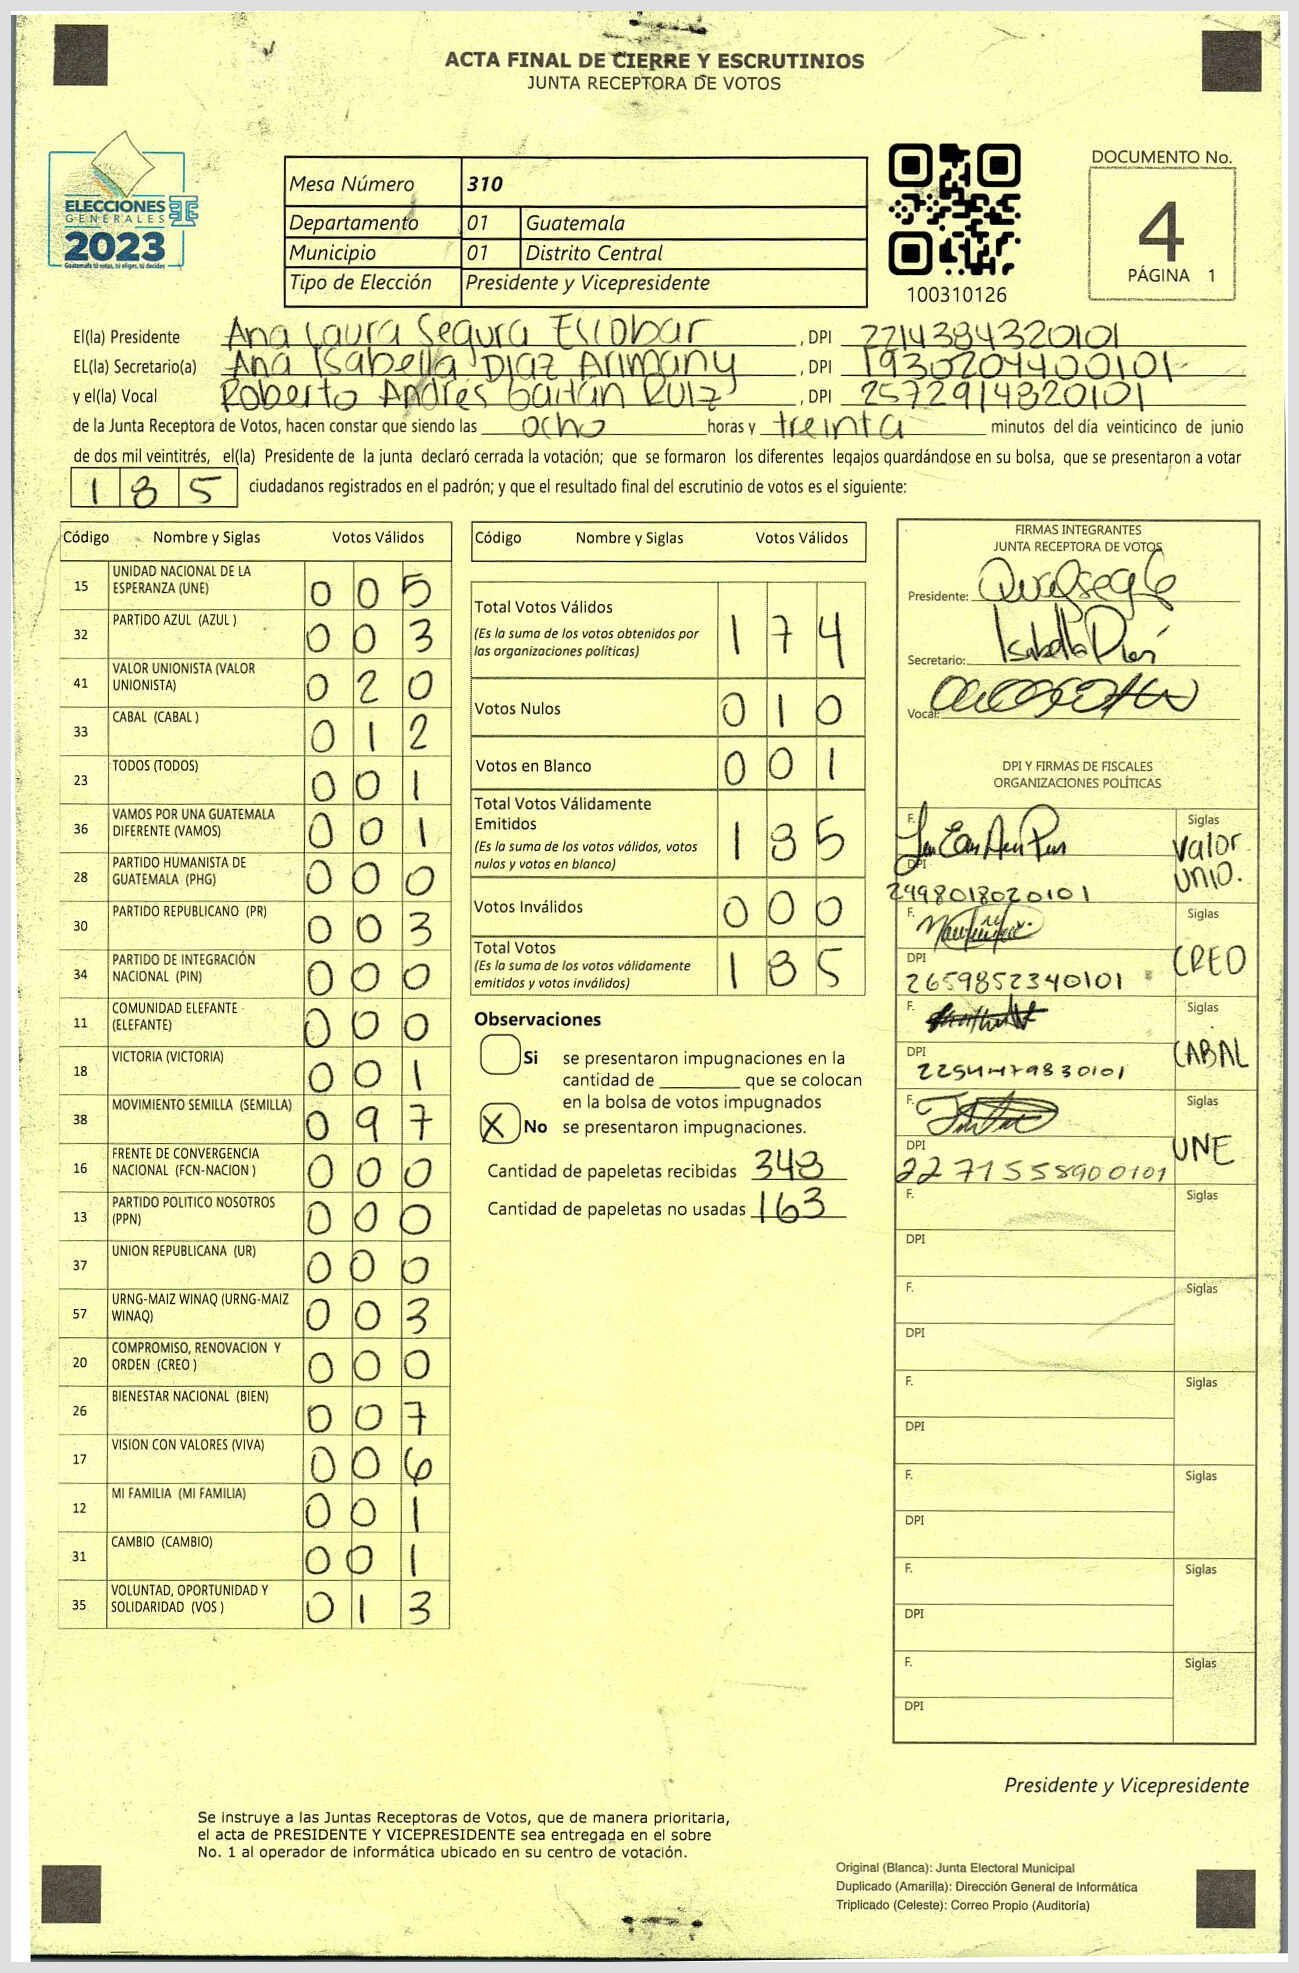 ACTA FINAL DE CIERRE Y ESCRUTINIOS
JUNTA RECEPTORA DE VOTOS
ELECCIONES
GENERALES
2023
Guatemala tú votas, tú eliges, tú decides
Mesa Número 310
Departamento 01 Guatemala
Municipio 01 Distrito Central
Tipo de Elección Presidente y Vicepresidente
100310126
DOCUMENTO No.
4
PÁGINA 1
El(la) Presidente Ana Laura Segura Escobar, DPI 2214384320101
EL(la) Secretario(a) Ana Isabella Díaz Arimany, DPI 1930204400101
y el(la) Vocal Roberto Andrés Gaitán Ruiz, DPI 2572914820101
de la Junta Receptora de Votos, hacen constar que siendo las ocho horas y treinta minutos del día veinticinco de junio
de dos mil veintitrés, el(la) Presidente de la junta declaró cerrada la votación; que se formaron los diferentes legajos quardándose en su bolsa, que se presentaron a votar
185 ciudadanos registrados en el padrón; y que el resultado final del escrutinio de votos es el siguiente:
Código Nombre y Siglas Votos Válidos
15 UNIDAD NACIONAL DE LA ESPERANZA (UNE) 005
32 PARTIDO AZUL (AZUL ) 003
41 VALOR UNIONISTA (VALOR UNIONISTA) 020
33 CABAL (CABAL ) 012
23 TODOS (TODOS) 001
36 VAMOS POR UNA GUATEMALA DIFERENTE (VAMOS) 001
28 PARTIDO HUMANISTA DE GUATEMALA (PHG) 000
30 PARTIDO REPUBLICANO (PR) 003
34 PARTIDO DE INTEGRACIÓN NACIONAL (PIN) 000
11 COMUNIDAD ELEFANTE (ELEFANTE) 000
18 VICTORIA (VICTORIA) 001
38 MOVIMIENTO SEMILLA (SEMILLA) 097
16 FRENTE DE CONVERGENCIA NACIONAL (FCN-NACION ) 000
13 PARTIDO POLITICO NOSOTROS (PPN) 000
37 UNION REPUBLICANA (UR) 000
57 URNG-MAIZ WINAQ (URNG-MAIZ WINAQ) 003
20 COMPROMISO, RENOVACION Y ORDEN (CREO ) 000
26 BIENESTAR NACIONAL (BIEN) 007
17 VISION CON VALORES (VIVA) 006
12 MI FAMILIA (MI FAMILIA) 001
31 CAMBIO (CAMBIO) 001
35 VOLUNTAD, OPORTUNIDAD Y SOLIDARIDAD (VOS ) 013
Código Nombre y Siglas Votos Válidos
Total Votos Válidos 174
(Es la suma de los votos obtenidos por
las organizaciones políticas)
Votos Nulos 010
Votos en Blanco 001
Total Votos Válidamente
Emitidos 185
(Es la suma de los votos válidos, votos
nulos y votos en blanco)
Votos Inválidos 000
Total Votos 185
(Es la suma de los votos válidamente
emitidos y votos inválidos)
Observaciones
Si se presentaron impugnaciones en la
cantidad de ________ que se colocan
en la bolsa de votos impugnados
X No se presentaron impugnaciones.
Cantidad de papeletas recibidas 348
Cantidad de papeletas no usadas 163
FIRMAS INTEGRANTES
JUNTA RECEPTORA DE VOTOS
Presidente:
Secretario: Isabella Díaz
Vocal:
DPI Y FIRMAS DE FISCALES
ORGANIZACIONES POLÍTICAS
F. Siglas
Valor
Unio.
DPI
2498018020101
F. Siglas
CREO
DPI
2659852340101
F. Siglas
CABAL
DPI
2254479830101
F. Siglas
UNE
DPI
2271558900101
F. Siglas
DPI
F. Siglas
DPI
F. Siglas
DPI
F. Siglas
DPI
F. Siglas
DPI
F. Siglas
DPI
Presidente y Vicepresidente
Se instruye a las Juntas Receptoras de Votos, que de manera prioritaria,
el acta de PRESIDENTE Y VICEPRESIDENTE sea entregada en el sobre
No. 1 al operador de informática ubicado en su centro de votación.
Original (Blanca): Junta Electoral Municipal
Duplicado (Amarilla): Dirección General de Informática
Triplicado (Celeste): Correo Propio (Auditoría)